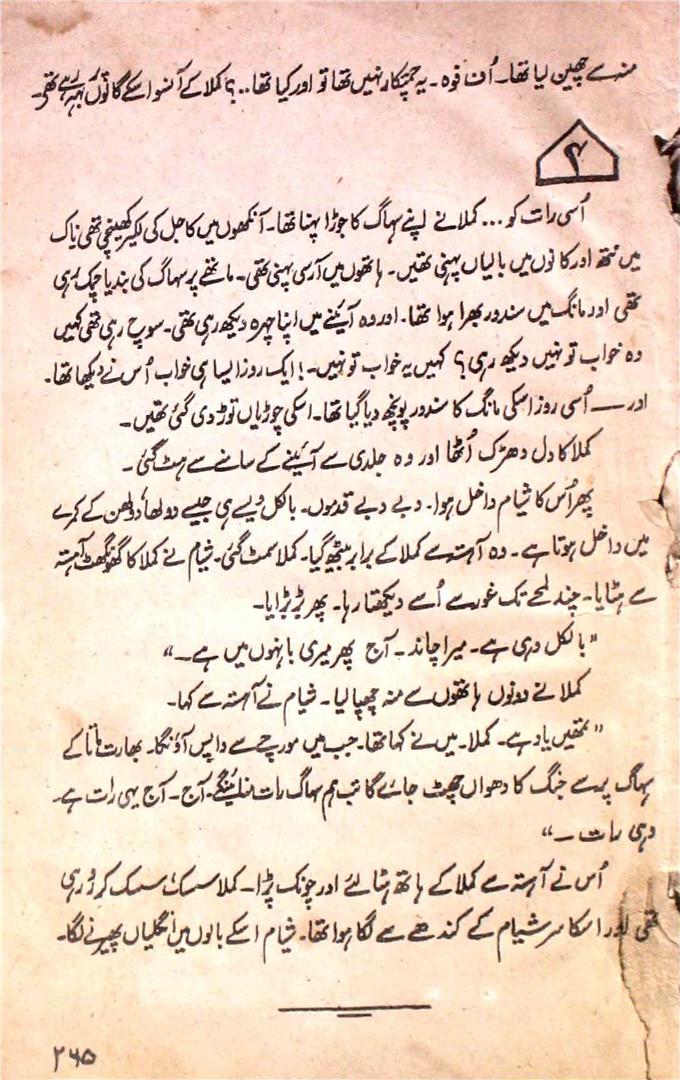 منہ سے چھین لیا تھا۔ اُف فوہ۔ یہ چمتکار نہیں تھا تو اور کیا تھا..؟ کملا کے آنسو اسکے گالوں پر بہہ رہے تھے۔
۴
اُسی رات کو... کملا نے اپنے سہاگ کا جوڑا پہنا تھا۔ آنکھوں میں کاجل کی لکیر کھینچی تھی ناک
میں نتھ اور کانوں میں بالیاں پہنی تھیں۔ ہاتھوں میں آرسی پہنی تھی۔ ماتھے پر سہاگ کی بندیا چمک رہی
تھی اور مانگ میں سندور بھرا ہوا تھا۔ اور وہ آئینے میں اپنا چہرہ دیکھ رہی تھی۔ سوچ رہی تھی کہیں
وہ خواب تو نہیں دیکھ رہی؟ کہیں یہ خواب تو نہیں۔! ایک روز ایسا ہی خواب اُس نے دیکھا تھا۔
اور — اُسی روز اسکی مانگ کا سندور پونچھ دیا گیا تھا۔ اسکی چوڑیاں توڑ دی گئی تھیں۔
کملا کا دل دھڑک اُٹھا اور وہ جلدی سے آئینے کے سامنے سے ہٹ گئی۔
پھر اُس کا شیام داخل ہوا۔ دبے دبے قدموں۔ بالکل ویسے ہی جیسے دولھا، دولھن کے کمرے
میں داخل ہوتا ہے۔ وہ آہستہ سے کملا کے برابر بیٹھ گیا۔ کملا سمٹ گئی۔ شیام نے کملا کا گھونگھٹ آہستہ
سے ہٹایا۔ چند لمحے تک غور سے اُسے دیکھتا رہا۔ پھر بڑبڑایا۔
"بالکل وہی ہے۔ میرا چاند۔ آج پھر میری بانہوں میں ہے۔"
کملا نے دونوں ہاتھوں سے منہ چھپا لیا۔ شیام نے آہستہ سے کہا۔
"تمھیں یاد ہے۔ کملا۔ میں نے کہا تھا۔ جب میں مورچے سے واپس آؤنگا۔ بھارت ماتا کے
سہاگ پر سے جنگ کا دھواں چھٹ جائے گا تب ہم سہاگ رات منائینگے۔ آج۔ آج یہی رات ہے۔
وہی رات۔"
اُس نے آہستہ سے کملا کے ہاتھ ہٹائے اور چونک پڑا۔ کملا سسک سسک کر رو رہی
تھی اور اسکا سر شیام کے کندھے سے لگا ہوا تھا۔ شیام اسکے بالوں میں انگلیاں پھیرنے لگا۔
۲۶۵